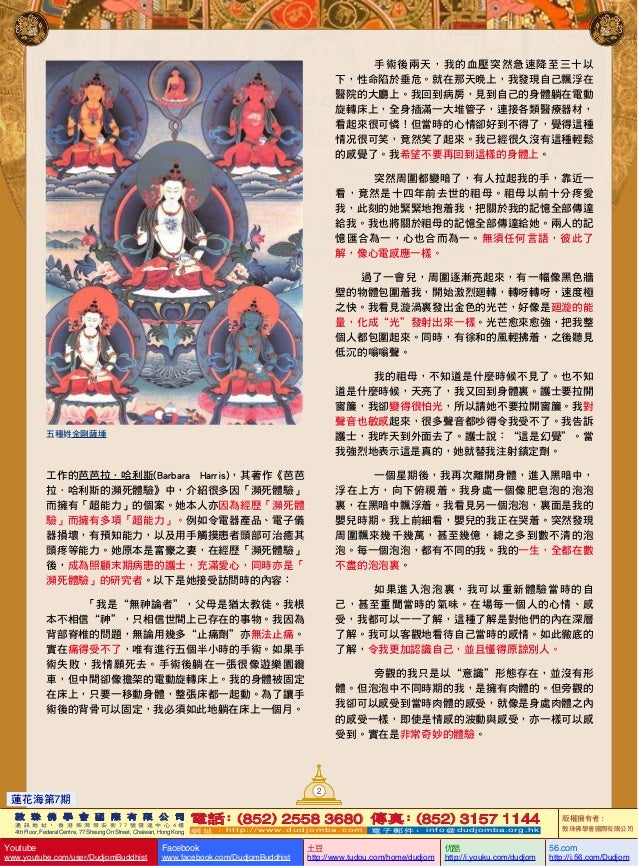 五種姓金剛薩埵
工作的芭芭拉．哈利斯(Barbara Harris)，其著作《芭芭
拉．哈利斯的瀕死體驗》中，介紹很多因「瀕死體驗」
而擁有「超能力」的個案。她本人亦因為經歷「瀕死體
驗」而擁有多項「超能力」。例如令電器產品、電子儀
器損壞，有預知能力，以及用手觸摸患者頭部可治癒其
頭疼等能力。她原本是富豪之妻，在經歷「瀕死體驗」
後，成為照顧末期病患的護士，充滿愛心，同時亦是「
瀕死體驗」的研究者。以下是她接受訪問時的內容：
「我是“無神論者”，父母是猶太教徒。我根
本不相信“神”，只相信世間上已存在的事物。我因為
背部脊椎的問題，無論用幾多“止痛劑”亦無法止痛。
實在痛得受不了，唯有進行五個半小時的手術。如果手
術失敗，我情願死去。手術後躺在一張很像遊樂園纜
車，但中間卻像擔架的電動旋轉床上。我的身體被固定
在床上，只要一移動身體，整張床都一起動。為了讓手
術後的背骨可以固定，我必須如此地躺在床上一個月。
手術後兩天，我的血壓突然急速降至三十以
下，性命陷於垂危。就在那天晚上，我發現自己飄浮在
醫院的大廳上。我回到病房，見到自己的身體躺在電動
旋轉床上，全身插滿一大堆管子，連接各類醫療器材，
看起來很可憐！但當時的心情卻好到不得了，覺得這種
情況很可笑，竟然笑了起來。我已經很久沒有這種輕鬆
的感覺了。我希望不要再回到這樣的身體上。
突然周圍都變暗了，有人拉起我的手，靠近一
看，竟然是十四年前去世的祖母。祖母以前十分疼愛
我，此刻的她緊緊地抱着我，把關於我的記憶全部傳達
給我。我也將關於祖母的記憶全部傳達給她。兩人的記
憶匯合為一，心也合而為一。無須任何言語，彼此了
解，像心電感應一樣。
過了一會兒，周圍逐漸亮起來，有一幅像黑色牆
壁的物體包圍着我，開始激烈迴轉，轉呀轉呀，速度極
之快。我看見漩渦裏發出金色的光芒，好像是迴漩的能
量，化成“光”發射出來一樣。光芒愈來愈強，把我整
個人都包圍起來。同時，有徐和的風輕拂着，之後聽見
低沉的嗡嗡聲。
我的祖母，不知道是什麼時候不見了。也不知
道是什麼時候，天亮了，我又回到身體裏。護士要拉開
窗簾，我卻變得很怕光，所以請她不要拉開窗簾。我對
聲音也敏感起來，很多聲音都吵得令我受不了。我告訴
護士，我昨天到外面去了。護士說：“這是幻覺”。當
我強烈地表示這是真的，她就替我注射鎮定劑。
一個星期後，我再次離開身體，進入黑暗中，
浮在上方，向下俯視着。我身處一個像肥皂泡的泡泡
裏，在黑暗中飄浮着。我看見另一個泡泡，裏面是我的
嬰兒時期。我上前細看，嬰兒的我正在哭着。突然發現
周圍飄來幾千幾萬，甚至幾億，總之多到數不清的泡
泡。每一個泡泡，都有不同的我。我的一生，全都在數
不盡的泡泡裏。
如果進入泡泡裏，我可以重新體驗當時的自
己，甚至重聞當時的氣味。在場每一個人的心情、感
受，我都可以一一了解，這種了解是對他們的內在深層
了解。我可以客觀地看待自己當時的感情。如此徹底的
了解，令我更加認識自己，並且懂得原諒別人。
旁觀的我只是以“意識”形態存在，並沒有形
體。但泡泡中不同時期的我，是擁有肉體的。但旁觀的
我卻可以感受到當時肉體的感受，就像是身處肉體之內
的感受一樣，即使是情感的波動與感受，亦一樣可以感
受到。實在是非常奇妙的體驗。
2
蓮花海第7期
敦珠佛學會國際有限公司
通訊地址：香港柴灣常安街77號發達中心4樓
4th Floor, Federal Centre, 77 Sheung On Street, Chaiwan, Hong Kong
電話：(852) 2558 3680 傳真：(852) 3157 1144
網址：http://www.dudjomba.com 電子郵件：info@dudjomba.org.hk
版權擁有者：
敦珠佛學會國際有限公司
Youtube
www.youtube.com/user/DudjomBuddhist
Facebook
www.facebook.com/DudjomBuddhist
土豆
http://www.tudou.com/home/dudjom
优酷
http://i.youku.com/dudjom
56.com
http://i.56.com/Dudjom